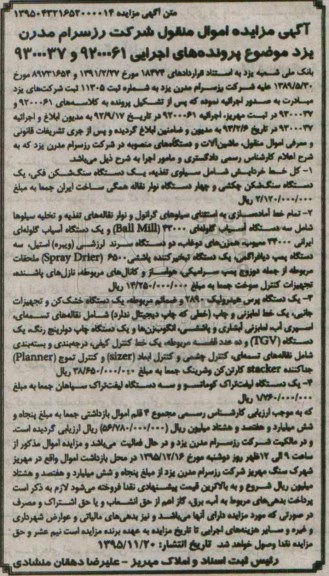 متن آگهی مزایده ۱۳۹۵۰۴۳۲۱۶۵۲۰۰۰۰۱۴
آگهی مزایده اموال منقول شرکت رزسرام مدرن
یزد موضوع پرونده‌های اجرایی ۹۲۰۰۰۶۱ و ۹۳۰۰۰۳۷
بانک ملی شعبه یزد به استناد قراردادهای ۱۸۴۷۴ مورخ ۱۳۹۱/۲/۲۷ و ۸۹۷۳۱۶۵۴ مورخ
۱۳۸۹/۵/۳۰ علیه شرکت رزسرام مدرن یزد به شماره ثبت ۱۱۳۰۵ ثبت شرکت‌های یزد
مبادرت به صدور اجرائیه نموده که پس از تشکیل پرونده به کلاسه‌های ۹۲۰۰۰۶۱ و
۹۳۰۰۰۳۷ در ثبت مهریز، اجرائیه ۹۲۰۰۰۶۱ در تاریخ ۹۲/۹/۱۷ به مدیون ابلاغ و اجرائیه
۹۳۰۰۰۳۷ در تاریخ ۹۳/۲/۶ به مدیون و ضامنین ابلاغ گردیده و پس از جری تشریفات قانونی
و معرفی اموال منقول، ماشین‌آلات و دستگاههای منصوبه در شرکت رزسرام مدرن یزد که به
شرح اعلام کارشناس رسمی دادگستری و مامور اجرا به شرح ذیل می‌باشد.
۱- کل خط خردایش شامل سیلوی تغذیه، یک دستگاه سنگ‌شکن فکی، یک
دستگاه سنگ‌شکن چکشی و چهار دستگاه نوار نقاله همگی ساخت ایران جمعا به مبلغ
۲/۱۲۰/۰۰۰/۰۰۰ ریال
۲- تمام خط آماده‌سازی به استثنای سیلوهای گرانول و نوار نقاله‌های تغذیه و تخلیه سیلوها
شامل سه دستگاه آسیاب گلوله‌ای ۴۳۰۰۰ (Ball Mill) و یک دستگاه آسیاب گلوله‌ای
ایرانی ۳۴۰۰۰ معیوب، همزن‌های دوغاب، دو دستگاه سرند لرزشی (ویبره) استیل، سه
دستگاه پمپ دیافراگمی، یک دستگاه تبخیرکننده پاششی ۶۵۰۰ (Spray Drier) ملحقات
مربوطه از جمله دوزوج پمپ سرامیکی، هواساز و کانال‌های مربوطه، نازل‌های پاشنده،
تجهیزات کنترل سوخت جمعا به مبلغ ۱۴/۲۵۰/۰۰۰/۰۰۰ ریال
۳- یک دستگاه پرس هیدرولیک ۲۸۹۰ و ضمائم مربوطه، یک دستگاه خشک‌کن و تجهیزات
جانبی، یک خط لعابزنی و چاپ (خطی که چاپ دیجیتال ندارد) شامل نقاله‌های تسمه‌ای،
اسپری آب، لعابزنی آبشاری و پاششی، انگوب‌زن‌ها و یک دستگاه چاپ دوارپنج رنگ، یک
دستگاه (TGV) و ده عدد قفسه مربوطه، یک خط کنترل کیفی، درجه‌بندی و بسته‌بندی
شامل نقاله‌های تسمه‌ای، کنترل چشمی و کنترل ابعاد (sizer) و کنترل تموج (Planner)
جداکننده stacker کارتن‌کن وشرینگ جمعا به مبلغ ۳۸/۶۵۰/۰۰۰/۰۰۰ ریال
۴- یک دستگاه لیفت‌تراک کوماتسو و سه دستگاه لیفت‌تراک سپاهان جمعا به مبلغ
۱/۷۶۰/۰۰۰/۰۰۰ ریال
که به موجب ارزیابی کارشناس رسمی مجموع ۴ قلم اموال بازداشتی جمعا به مبلغ پنجاه و
شش میلیارد و هفتصد و هشتاد میلیون ریال (۵۶/۷۸۰/۰۰۰/۰۰۰) ریال ارزیابی گردیده است.
و در مالکیت شرکت رزسرام مدرن یزد و در حال فعالیت می‌باشد و مزایده اموال مذکور از
ساعت ۹ الی ۱۲ظهر روز دوشنبه مورخ ۱۳۹۵/۱۲/۱۶ در محل بازداشت اموال واقع در مهریز
شهرک سنگ مهریز شرکت رزسرام مدرن یزد از مبلغ پنجاه و شش میلیارد و هفتصد و هشتاد
میلیون ریال شروع و به بالاترین قیمت پیشنهادی نقدا فروخته می‌شود لازم به ذکر است
پرداخت بدهی‌های مربوط به آب، برق، گاز اعم از حق انشعاب و یا حق اشتراک و مصرف
در صورتی که مورد مزایده دارای آنها می‌باشد و نیز بدهی‌های مالیاتی و عوارض شهرداری
و غیره و سایر هزینه‌های اجرایی تا تاریخ مزایده به عهده برنده مزایده است نیم عشر و حق
مزایده نقدا وصول خواهد شد. تاریخ انتشار: ۱۳۹۵/۱۱/۲۰
رئیس ثبت اسناد و املاک مهریز - علیرضا دهقان منشادی